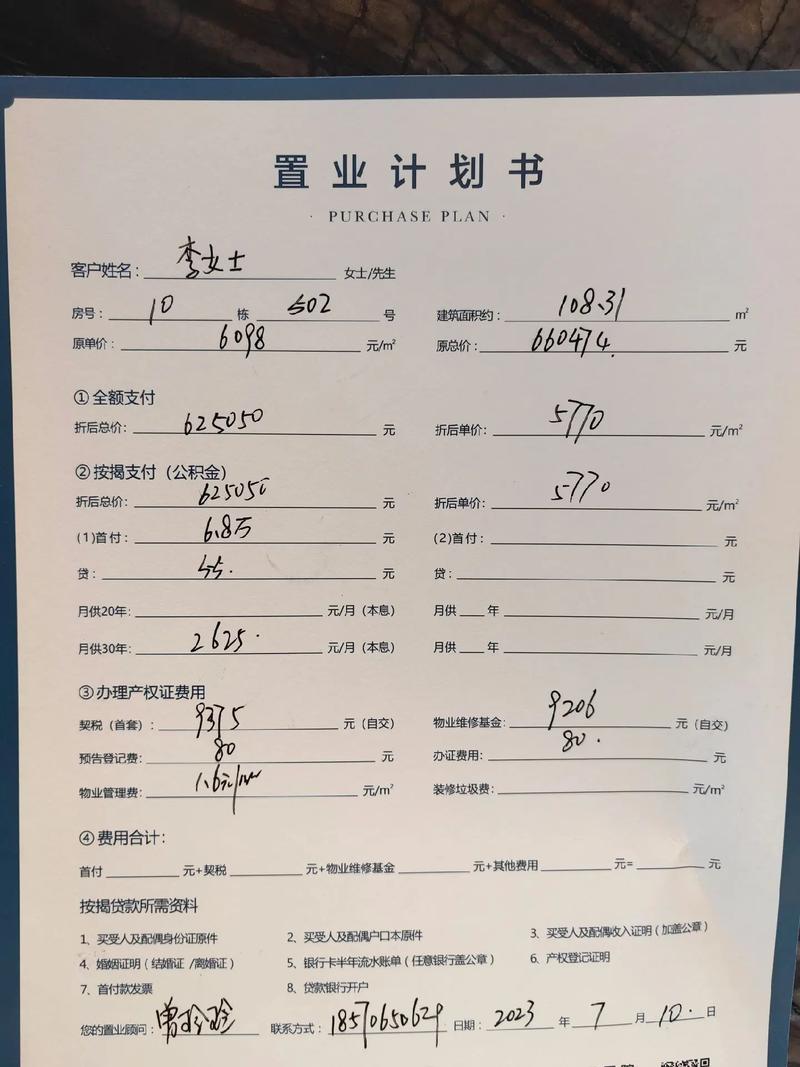 置业计划书
· PURCHASE PLAN ·
客户姓名：李女士 女士/先生
房号：10 栋 502 号 建筑面积约：108.31 m²
原单价：6098 元/m² 原总价：660474. 元
①全额支付
折后总价：625050 元 折后单价：5770 元/m²
②按揭支付（公积金）
折后总价：625050 元 折后单价：5770 元/m²
(1)首付：6.8万 元 (2)首付： 元
贷：55. 元 贷： 元
月供20年： 元/月（本息） 月供 年 元/月
月供30年：2625. 元/月（本息） 月供 年 元/月
③办理产权证费用
契税（首套）：9375 元（自交） 物业维修基金：9206 元（自交）
预告登记费：80 元 办证费用：80. 元
物业管理费：1.6元/ 元/m² 装修垃圾费： 元/m²
④费用合计：
首付 元+契税 元+物业维修基金 元+其他费用 元= 元
按揭贷款所需资料
1、买受人及配偶身份证原件 2、买受人及配偶户口本原件 3、买受人及配偶收入证明（加盖公章）
4、婚姻证明（结婚证 /离婚证） 5、银行卡半年流水账单（任意银行盖公章） 6、产权登记证明
7、首付款发票 8、贷款银行开户
您的置业顾问：曾玲玲 联系方式：18570650629 日期：2023 年 7 月 10. 日